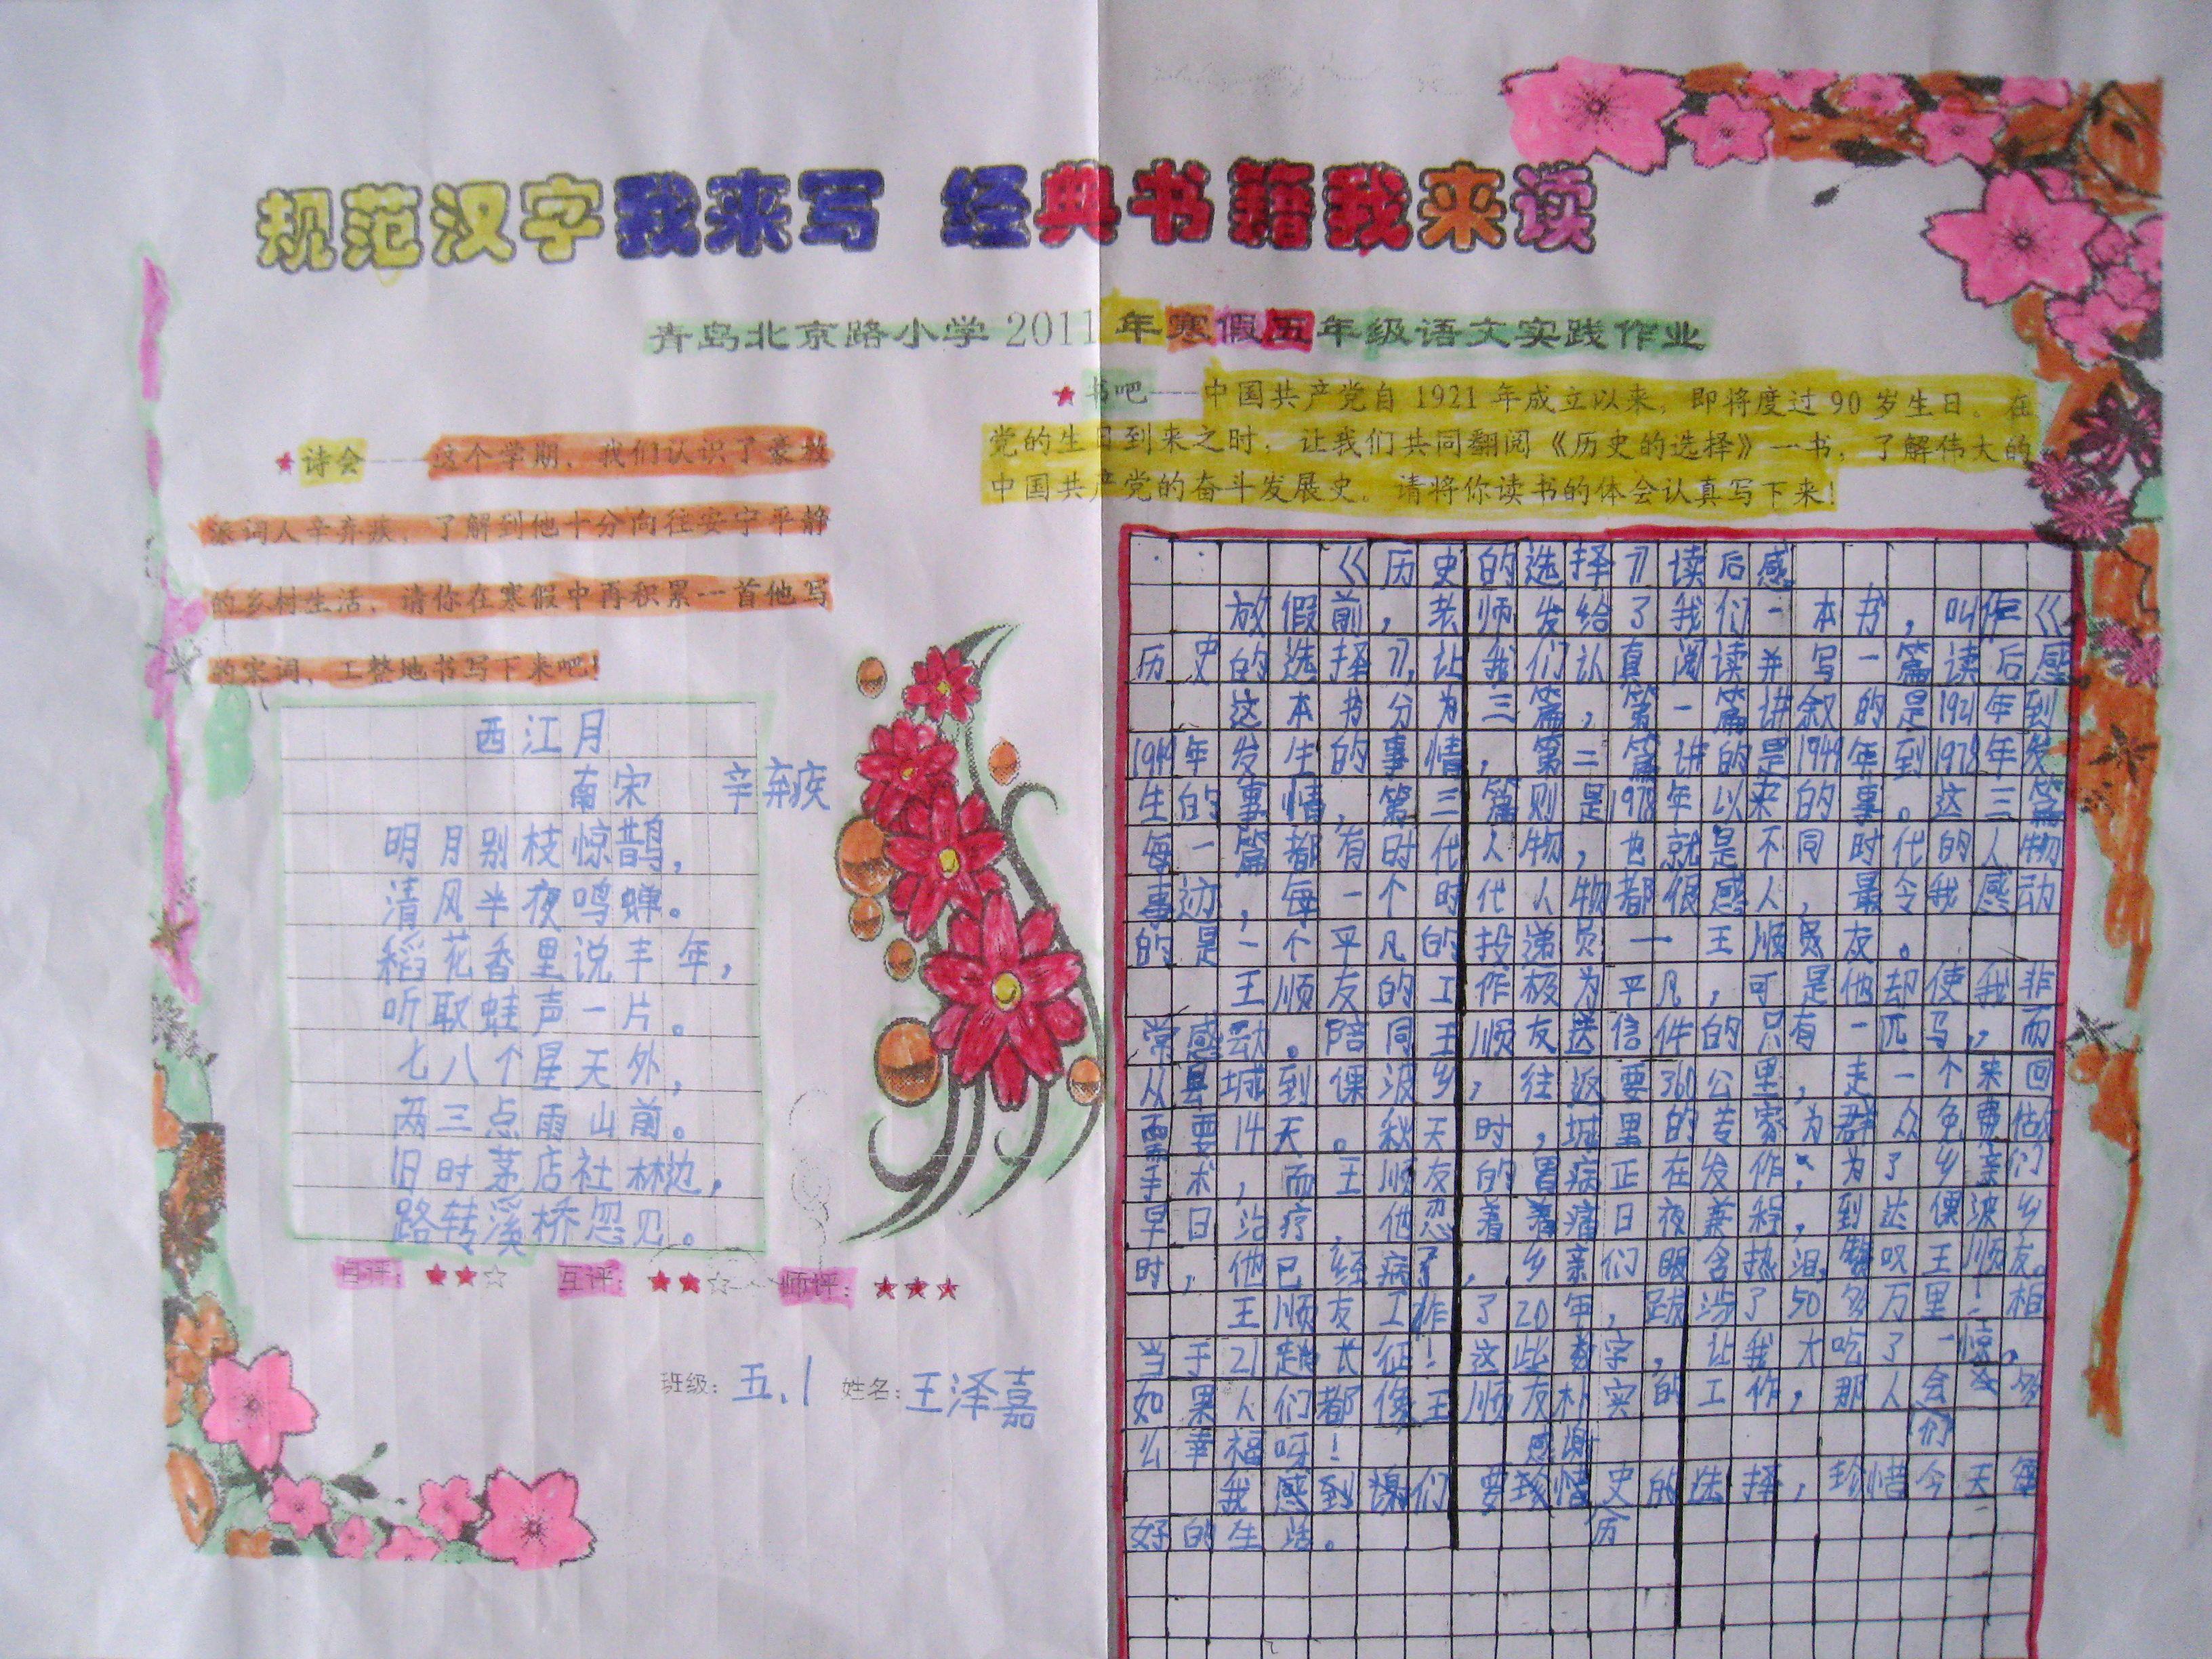 规范汉字我来写 经典书籍我来读
青岛北京路小学2011年寒假五年级语文实践作业
★诗会——这个学期，我们认识了豪放
派词人辛弃疾，了解到他十分向往安宁平静
的乡村生活，请你在寒假中再积累一首他写
的宋词，工整地书写下来吧！
西江月
南宋 辛弃疾
明月别枝惊鹊，
清风半夜鸣蝉。
稻花香里说丰年，
听取蛙声一片。
七八个星天外，
两三点雨山前。
旧时茅店社林边，
路转溪桥忽见。
自评：★★☆ 互评：★★☆ 师评：★★★
班级：五.1 姓名：王泽嘉
★书吧——中国共产党自1921年成立以来，即将度过90岁生日。在
党的生日到来之时，让我们共同翻阅《历史的选择》一书，了解伟大的
中国共产党的奋斗发展史。请将你读书的体会认真写下来！
《历史的选择》读后感
放假前，老师发给了我们一本书，叫作《
历史的选择》，让我们认真阅读并写一篇读后感
这本书分为三篇，第一篇讲叙的是1921年到
1949年发生的事情，第二篇讲的是1949年到1978年发
生的事情，第三篇则是1978年以来的事。这三篇
每一篇都有时代人物，也就是不同时代的人物
事迹，每一个时代人物都很感人，最令我感动
的是一个平凡的投递员—王顺友。
王顺友的工作极为平凡，可是他却使我非
常感动。陪同王顺友送信件的只有一匹马，而
从县城到倮波乡，往返要360公里，走一个来回
需要14天。秋天时，城里的专家为群众免费做
手术，而王顺友的胃病正在发作，为了乡亲们
早日治疗，他忍着痛日夜兼程，到达倮波乡
时，他已经病了，乡亲们眼含热泪，叹王顺友。
王顺友工作了20年，跋涉了50多万里！相
当于21趟长征！这些数字，让我大吃了一惊。
如果人们都像王顺友朴实的工作，那人会多
么幸福呀！
我感到感谢们要珍惜历史的选择，珍惜今天每
好的生活。